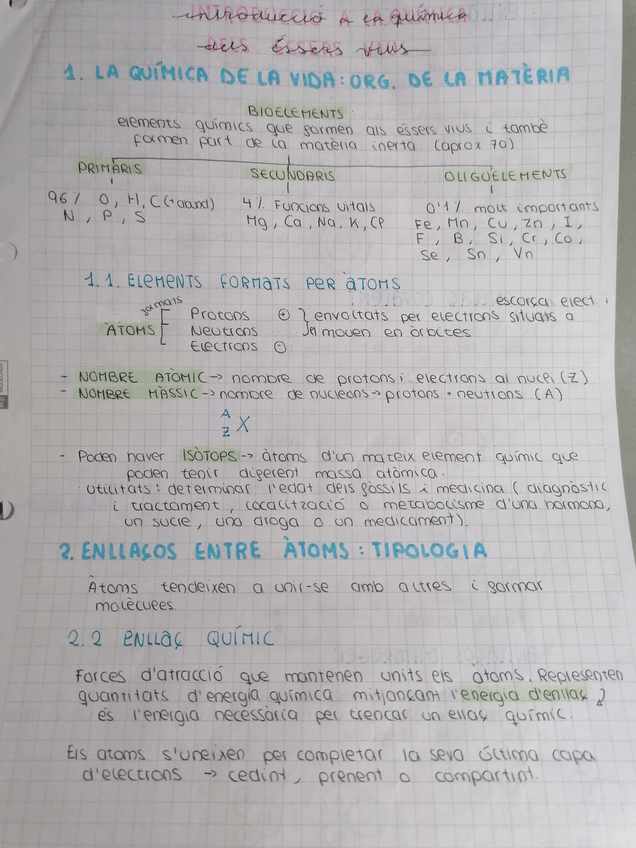 INTRODUCCIÓ A LA QUÍMICA
DELS ÉSSERS VIUS
1. LA QUÍMICA DE LA VIDA: ORG. DE LA MATÈRIA
BIOELEMENTS:
elements químics que formen als éssers vius i també
formen part de la matèria inerta (aprox 70)
PRIMARIS SECUNDARIS OLIGOELEMENTS
96% O, H, C (+abund) 4% Funcions vitals 0'1% molt importants
N, P, S Mg, Ca, Na, K, Cl Fe, Mn, Cu, Zn, I,
F, B, Si, Cr, Co,
Se, Sn, Vn
1.1. ELEMENTS FORMATS PER ÀTOMS
formats escorça elect.
Protons ⊕ } envoltats per electrons situats a
ÀTOMS Neutrons ja mouen en òrbites
Electrons ⊖
- NOMBRE ATÒMIC → nombre de protons i electrons al nucli (Z)
- NOMBRE MÀSSIC → nombre de nucleons → protons + neutrons (A)
A
Z X
- Poden haver ISÒTOPS → àtoms d'un mateix element químic que
poden tenir diferent massa atòmica.
Utilitats: determinar l'edat dels fòssils i medicina (diagnòstic
i tractament, localització o metabolisme d'una hormona,
un sucre, una droga o un medicament).
2. ENLLAÇOS ENTRE ÀTOMS: TIPOLOGIA
Àtoms tendeixen a unir-se amb altres i formar
molècules.
2.2 ENLLAÇ QUÍMIC
Forces d'atracció que mantenen units els àtoms. Representen
quantitats d'energia química mitjançant l'energia d'enllaç
és l'energia necessària per trencar un ellaç químic.
Els atoms s'uneixen per completar la seva última capa
d'electrons → cedint, prenent o compartint.